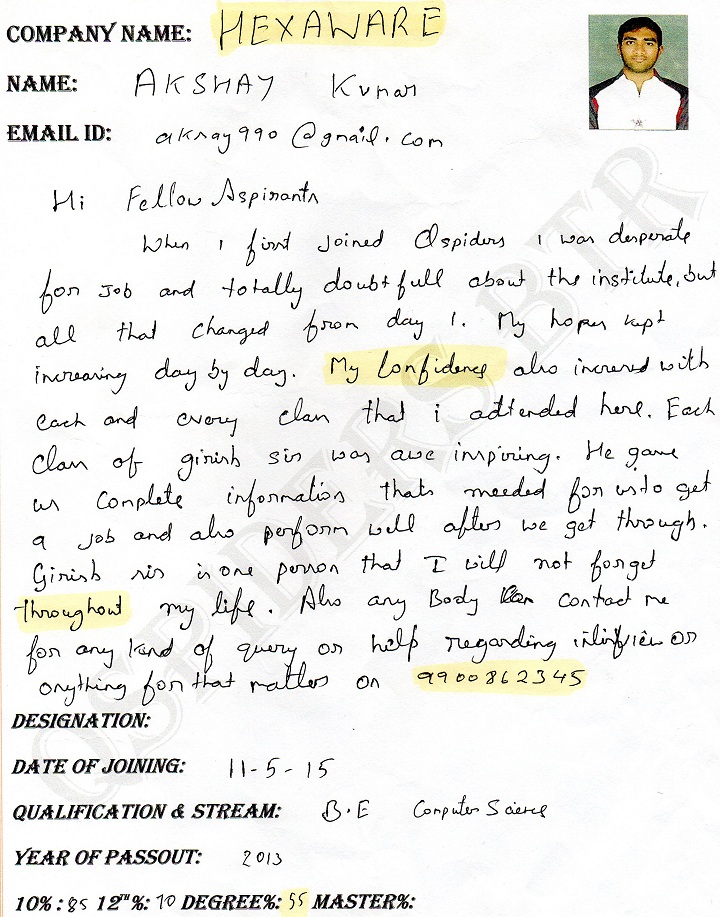 COMPANY NAME: HEXAWARE
NAME: AKSHAY Kumar
EMAIL ID: aksay990@gmail.com
Hi Fellow Aspirants
When I first Joined Qspiders I was desperate
for Job and totally doubtfull about the institute, but
all that changed from day 1. My hopes kept
increasing day by day. My Confidence also incresed with
each and every class that i adtended here. Each
Class of girish sir was awe inspiring. He gave
us complete information thats needed for us to get
a Job and also perform well after we get through.
Girish sir is one person that I will not forget
throughout my life. Also any Body Can contact me
for any kind of query or help regarding interview or
anything for that matter on 9900862345
DESIGNATION:
DATE OF JOINING: 11-5-15
QUALIFICATION & STREAM: B.E Computer Science
YEAR OF PASSOUT: 2013
10% : 85 12TH%: 70 DEGREE%: 55 MASTER%:
QSPIDERS BTR